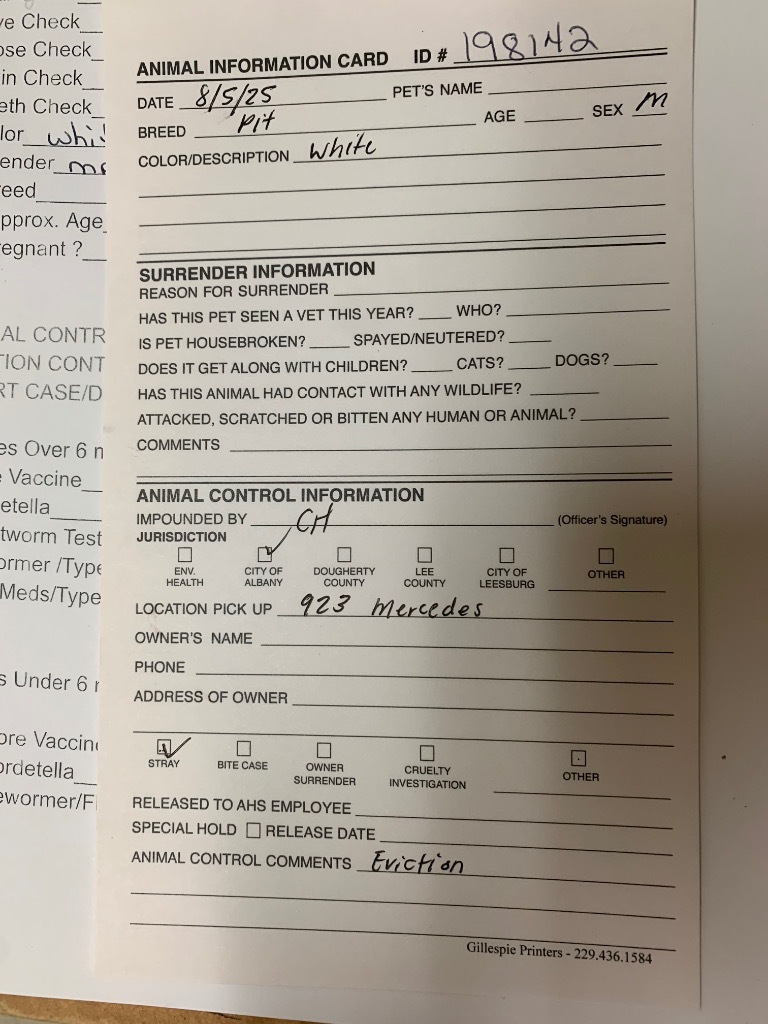 ve Check
ose Check
in Check
eth Check
lor whi
ender ma
eed
pprox. Age
egnant ?
AL CONTR
TION CONT
RT CASE/D
es Over 6 m
Vaccine
etella
tworm Test
ormer /Type
Meds/Type
s Under 6 m
ore Vaccin
ordetella
ewormer/F
ANIMAL INFORMATION CARD ID # 198142
DATE 8/5/25 PET'S NAME
BREED Pit AGE SEX M
COLOR/DESCRIPTION White
SURRENDER INFORMATION
REASON FOR SURRENDER
HAS THIS PET SEEN A VET THIS YEAR? WHO?
IS PET HOUSEBROKEN? SPAYED/NEUTERED?
DOES IT GET ALONG WITH CHILDREN? CATS? DOGS?
HAS THIS ANIMAL HAD CONTACT WITH ANY WILDLIFE?
ATTACKED, SCRATCHED OR BITTEN ANY HUMAN OR ANIMAL?
COMMENTS
ANIMAL CONTROL INFORMATION
IMPOUNDED BY CH (Officer's Signature)
JURISDICTION
ENV. HEALTH CITY OF ALBANY DOUGHERTY COUNTY LEE COUNTY CITY OF LEESBURG OTHER
LOCATION PICK UP 923 Mercedes
OWNER'S NAME
PHONE
ADDRESS OF OWNER
STRAY BITE CASE OWNER SURRENDER CRUELTY INVESTIGATION OTHER
RELEASED TO AHS EMPLOYEE
SPECIAL HOLD RELEASE DATE
ANIMAL CONTROL COMMENTS Eviction
Gillespie Printers - 229.436.1584